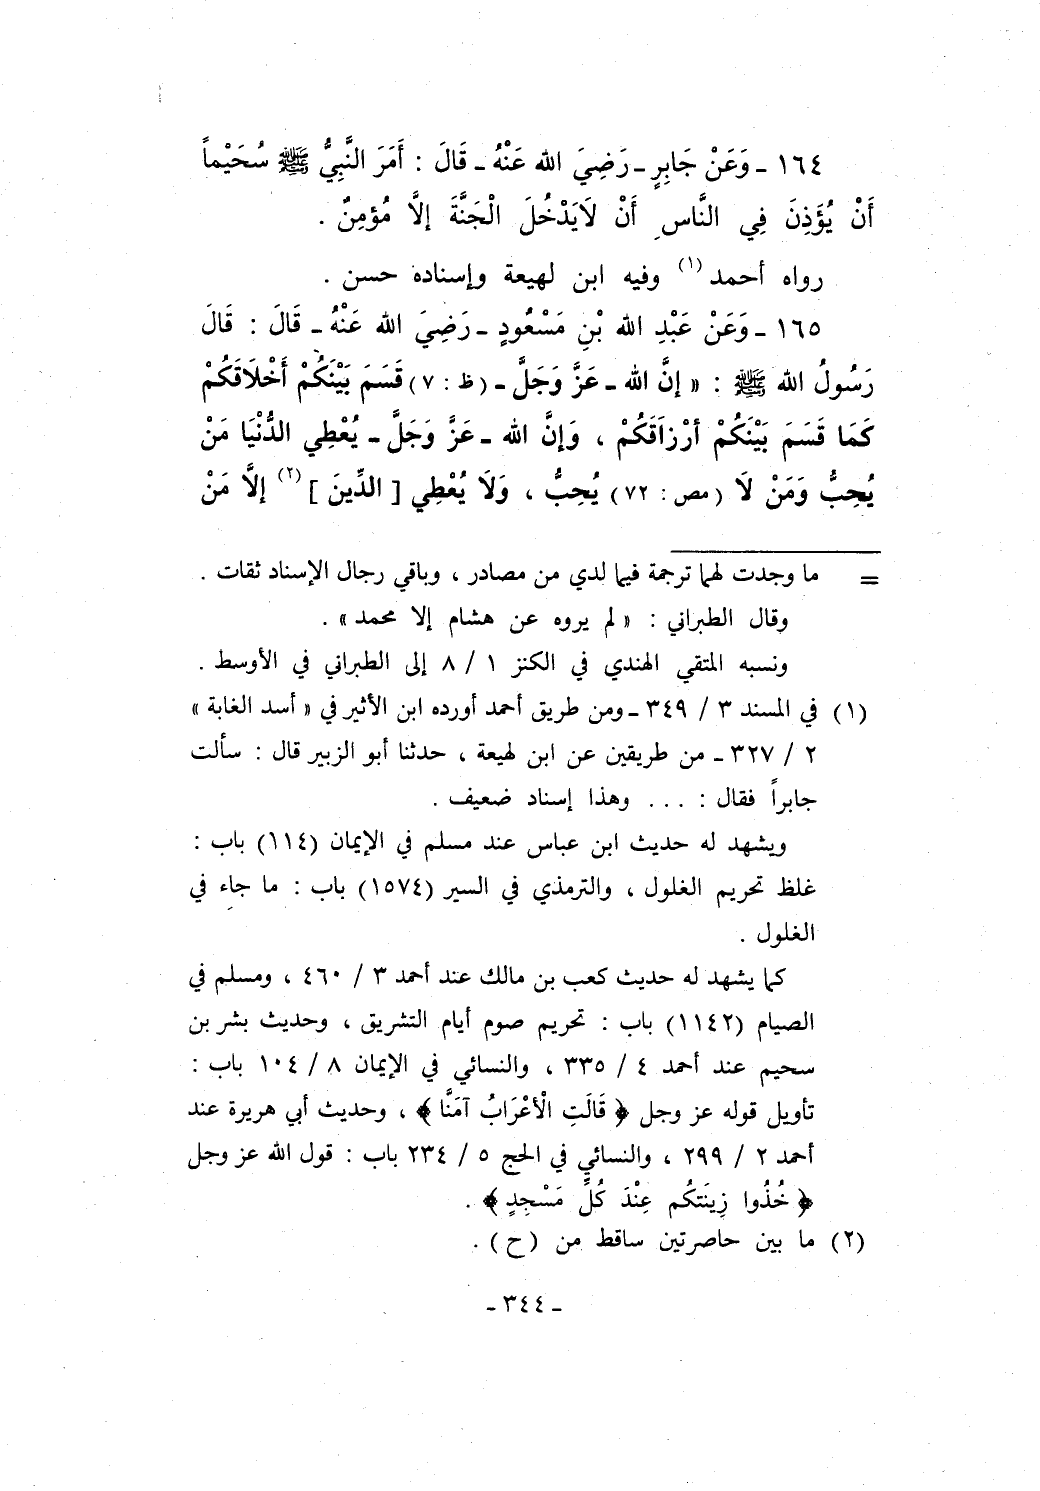 ١٦٤ - وَعَنْ جَابِرٍ - رَضِيَ الله عَنْهُ - قَالَ : أَمَرَ النَّبِيُّ ﷺ سُحَيْماً
أَنْ يُؤَذِنَ فِي النَّاسِ أَنْ لَايَدْخُلَ الْجَنَّةَ إلَّا مُؤمِنٌ .
رواه أحمد (١) وفيه ابن لهيعة وإسناده حسن .
١٦٥ - وَعَنْ عَبْدِ الله بْنِ مَسْعُودٍ - رَضِيَ الله عَنْهُ - قَالَ : قَالَ
رَسُولُ الله ﷺ : « إنَّ الله - عَزَّ وَجَلَّ - (ظ : ٧) قَسَمَ بَيْنَكُمْ أَخْلَاقَكُمْ
كَمَا قَسَمَ بَيْنَكُمْ أرْزاَقَكُمْ ، وَإنَّ الله - عَزَّ وَجَلَّ - يُعْطِي الدُّنْيَا مَنْ
يُحِبُّ وَمَنْ لَا (مص : ٧٢) يُحِبُّ ، وَلَا يُعْطِي [ الدِّينَ ] (٢) إلَّا مَنْ
= ما وجدت لهما ترجمة فيما لدي من مصادر ، وباقي رجال الإسناد ثقات .
وقال الطبراني : « لم يروه عن هشام إلا محمد » .
ونسبه المتقي الهندي في الكنز ١ / ٨ إلى الطبراني في الأوسط .
(١) في المسند ٣ / ٣٤٩ - ومن طريق أحمد أورده ابن الأثير في « أسد الغابة »
٢ / ٣٢٧ - من طريقين عن ابن لهيعة ، حدثنا أبو الزبير قال : سألت
جابراً فقال : ... وهذا إسناد ضعيف .
ويشهد له حديث ابن عباس عند مسلم في الإيمان (١١٤) باب :
غلظ تحريم الغلول ، والترمذي في السير (١٥٧٤) باب : ما جاء في
الغلول .
كما يشهد له حديث كعب بن مالك عند أحمد ٣ / ٤٦٠ ، ومسلم في
الصيام (١١٤٢) باب : تحريم صوم أيام التشريق ، وحديث بشر بن
سحيم عند أحمد ٤ / ٣٣٥ ، والنسائي في الإيمان ٨ / ١٠٤ باب :
تأويل قوله عز وجل ﴿ قَالَتِ الْأَعْرَابُ آمَنَّا ﴾ ، وحديث أبي هريرة عند
أحمد ٢ / ٢٩٩ ، والنسائي في الحج ٥ / ٢٣٤ باب : قول الله عز وجل
﴿ خُذُوا زِينَتكُم عِنْدَ كُلِّ مَسْجِدٍ ﴾ .
(٢) ما بين حاصرتين ساقط من (ح) .
- ٣٤٤ -